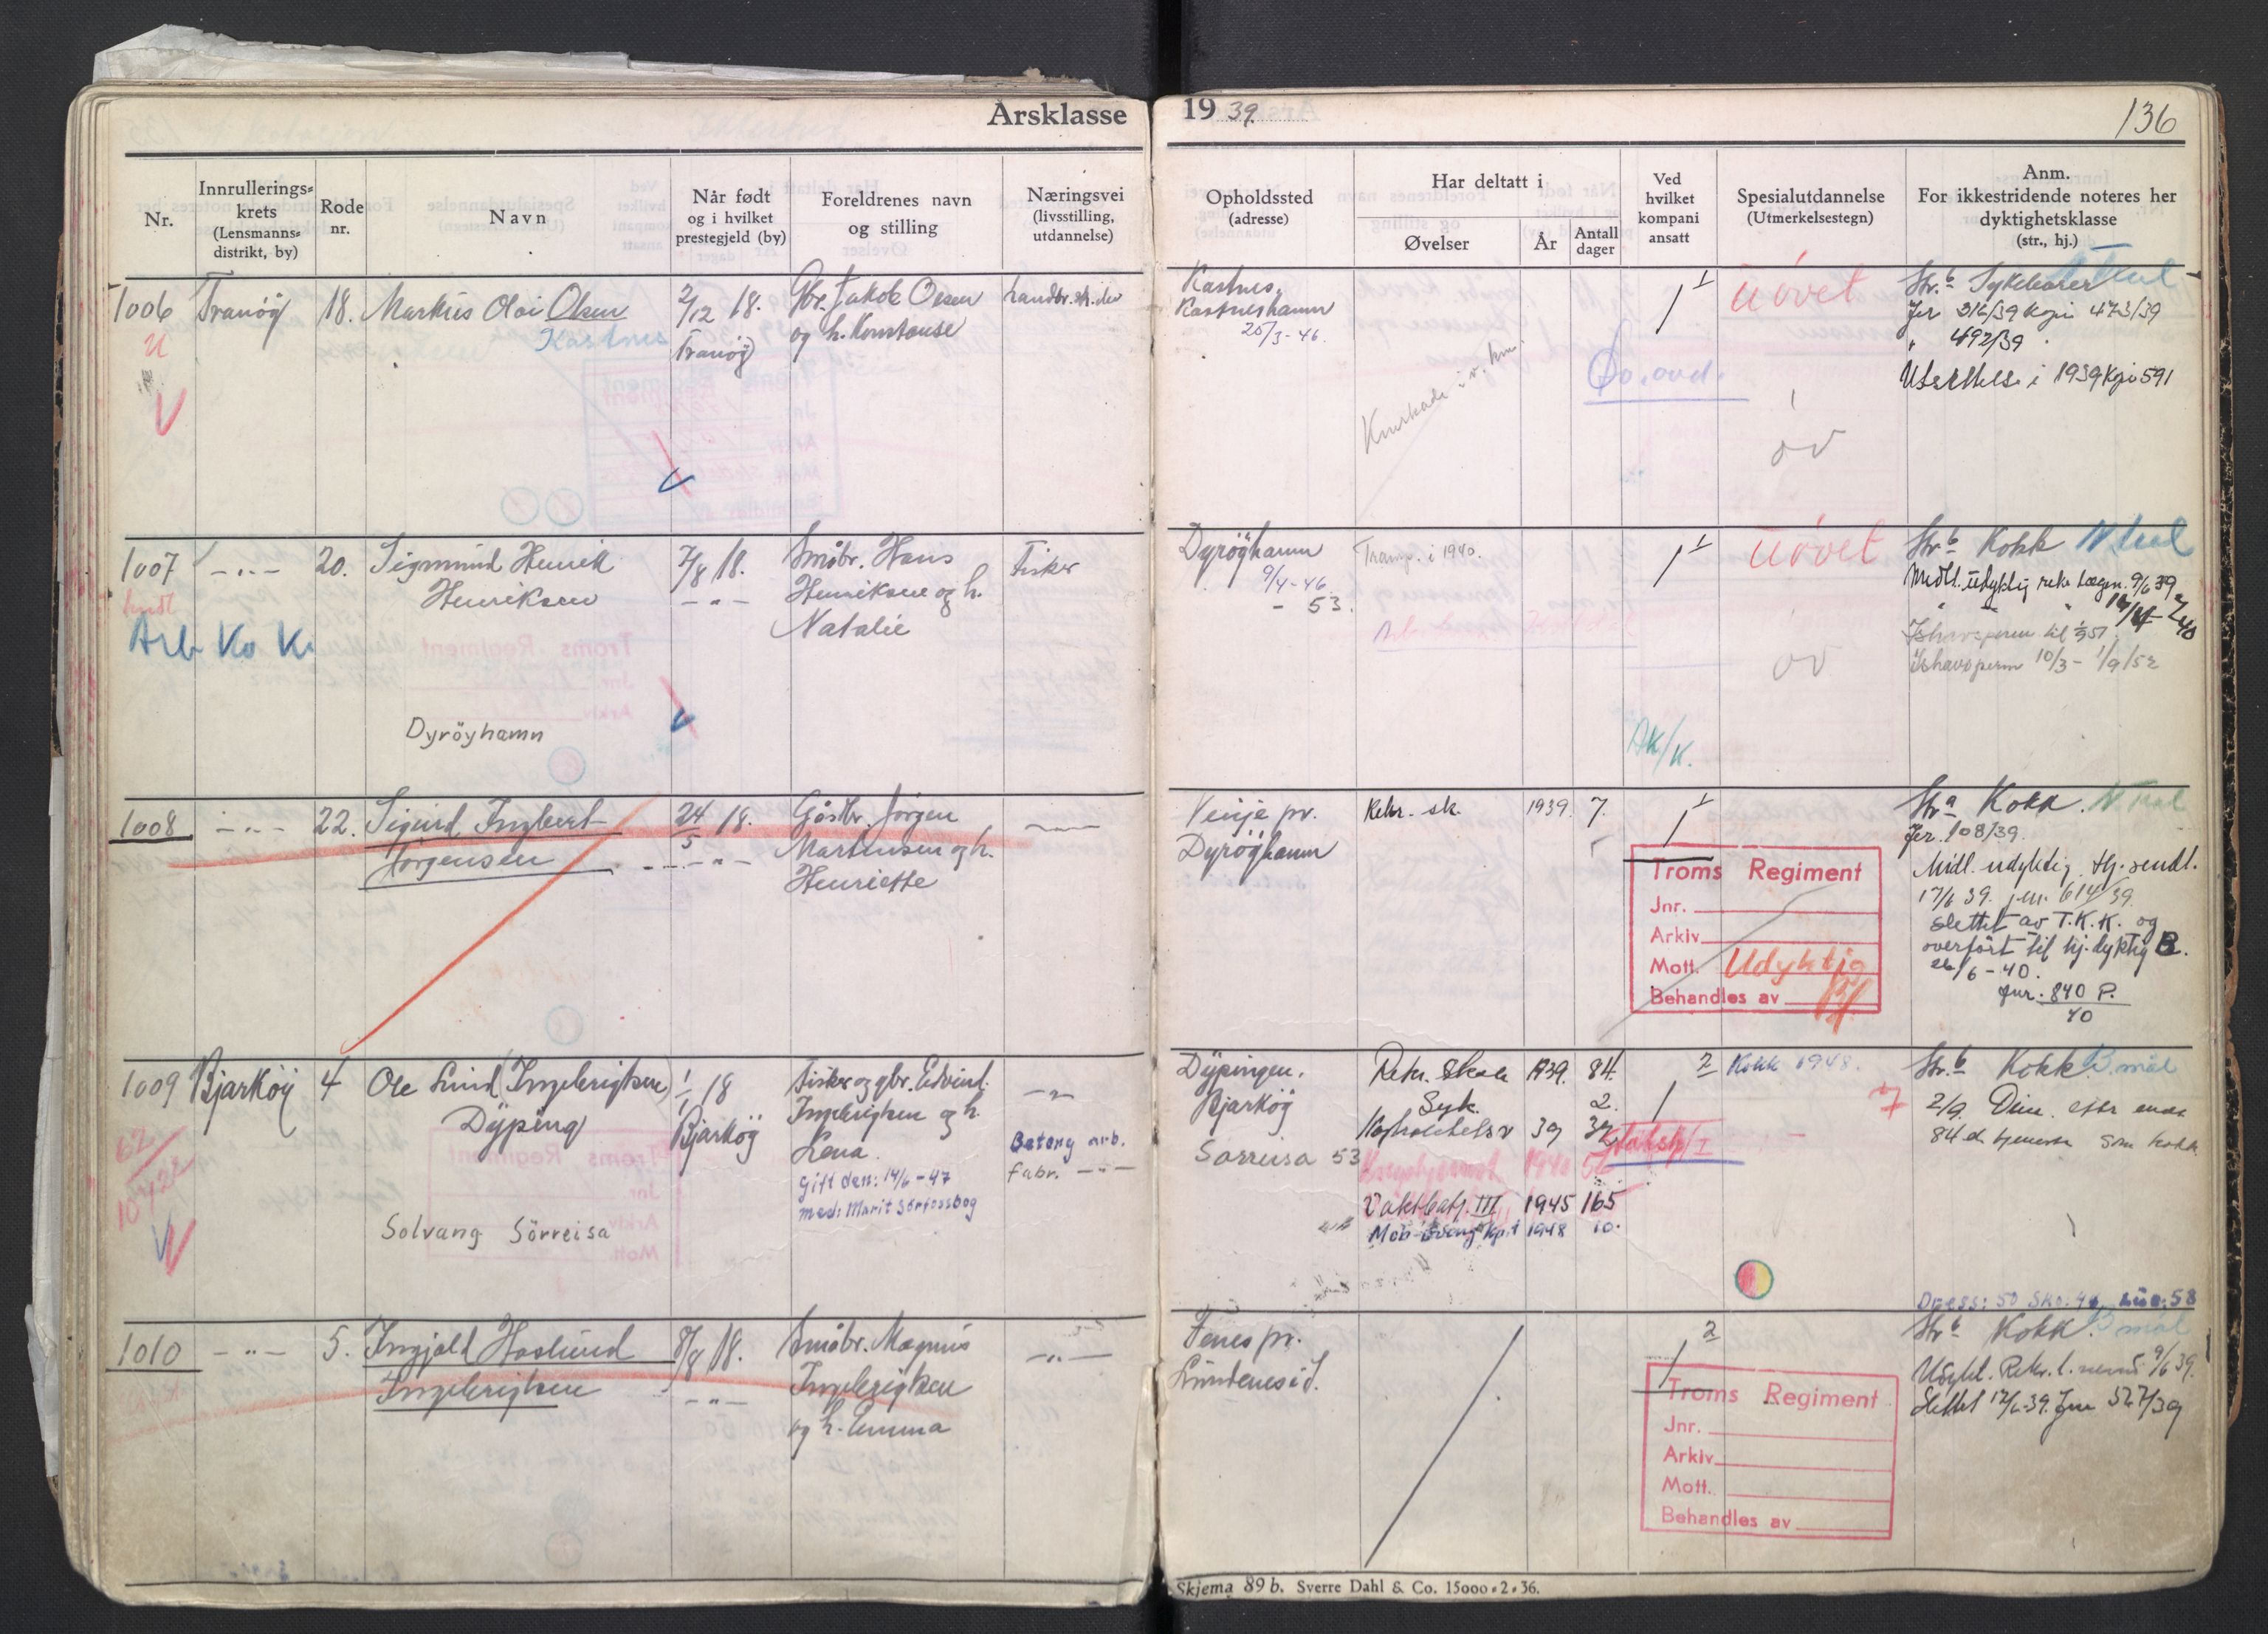 Årsklasse 19 39.
136
Nr.
Innrullerings-
krets
(Lensmanns-
distrikt, by)
Rode
nr.
Navn
Når født
og i hvilket
prestegjeld (by)
Foreldrenes navn
og stilling
Næringsvei
(livsstilling,
utdannelse)
Opholdssted
(adresse)
Har deltatt i
Øvelser
År
Antall
dager
Ved
hvilket
kompani
ansatt
Spesialutdannelse
(Utmerkelsestegn)
Anm.
For ikkestridende noteres her
dyktighetsklasse
(str., hj.)
1006 Tranöy 18. Markus Olai Olsen
Kastnes
2/12 18.
Tranöy
Gbr. Jakob Olsen
og h. Konstanse
Kastnes,
Kastneshamn
25/3-46.
1
uövet
öv
Str. b Sykebærer
Jnr 316/39 Kopi 473/39
" 492/39
Utsettelse i 1939 Kopi 591
1007 -"- 20. Sigmund Henrik
Henriksen
Arb Ko K
Dyröyhamn
7/8 18.
-"-
Småbr. Hans
Henriksen og h.
Natalie
Fisker
Dyröyhamn
9/4-46
- 53.
Tramp. i 1940.
1
AK/K.
uövet
öv
Str. b Kokk N mål
Midl. udyktig rekr. lægen. 9/6 39
Ishavsperm til 1/9 51
Ishavsperm 10/3 - 1/9/52
1008 -"- 22. Sigurd Ingbert
Jörgensen
24/5 18.
-"-
Gårdbr. Jörgen
Martinsen og h.
Henriette
Vinje pr.
Dyröyhamn
Rekr. sk. 1939. 7.
1
Troms Regiment
Jnr.
Arkiv
Mott. Udyktig
Behandles av
Str. a Kokk. N mål
Jnr. 108/39.
Midl. udyktig. Hj. sendt.
17/6 39. jnr. 614/39.
slettet av T.K.K. og
overført til hj. dyktig B.
26/6-40.
Jnr. 840 P.
40
1009 Bjarköy 4 Ole Lund (Ingebrigtsen)
Dyping
62
Solvang Sörreisa
1/1 18
Bjarköy
Fisker og gbr. Edvind
Ingebrigtsen og h.
Lena.
Gift den: 14/6-47
med: Marit Sörfossbog
-"-
Betong arb.
fabr. -"-
Dypingen.
Bjarköy
Sörreisa 53
Rekr. Skole 1939. 84.
Syk. 2.
Nøytralitetsv 39 39
Krigstjenest. 1940 56
Vaktbatj. III 1945 165
Mob-öving Kp.t 1948 10.
2
1
Kokk 1948.
Str. b Kokk. B. mål
2/9. Dim. efter endt
84 d. tjeneste som kokk
Dress: 50 Sko: 44 Lue: 58
1010 -"- 5. Ingjald Haslund
Ingebrigtsen
8/8 18.
-"-
Småbr. Magnus
Ingebrigtsen
og h. Emma
-"-
Fenes pr.
Lundenesid.
2
1
Troms Regiment
Jnr.
Arkiv
Mott.
Behandles av
Str. b Kokk. B mål
Udykt. Rekr. l. nemd 9/6 39.
Slettet 12/6-39. Jnr 527/39
Skjema 89 b. Sverre Dahl & Co. 15000-2-36.